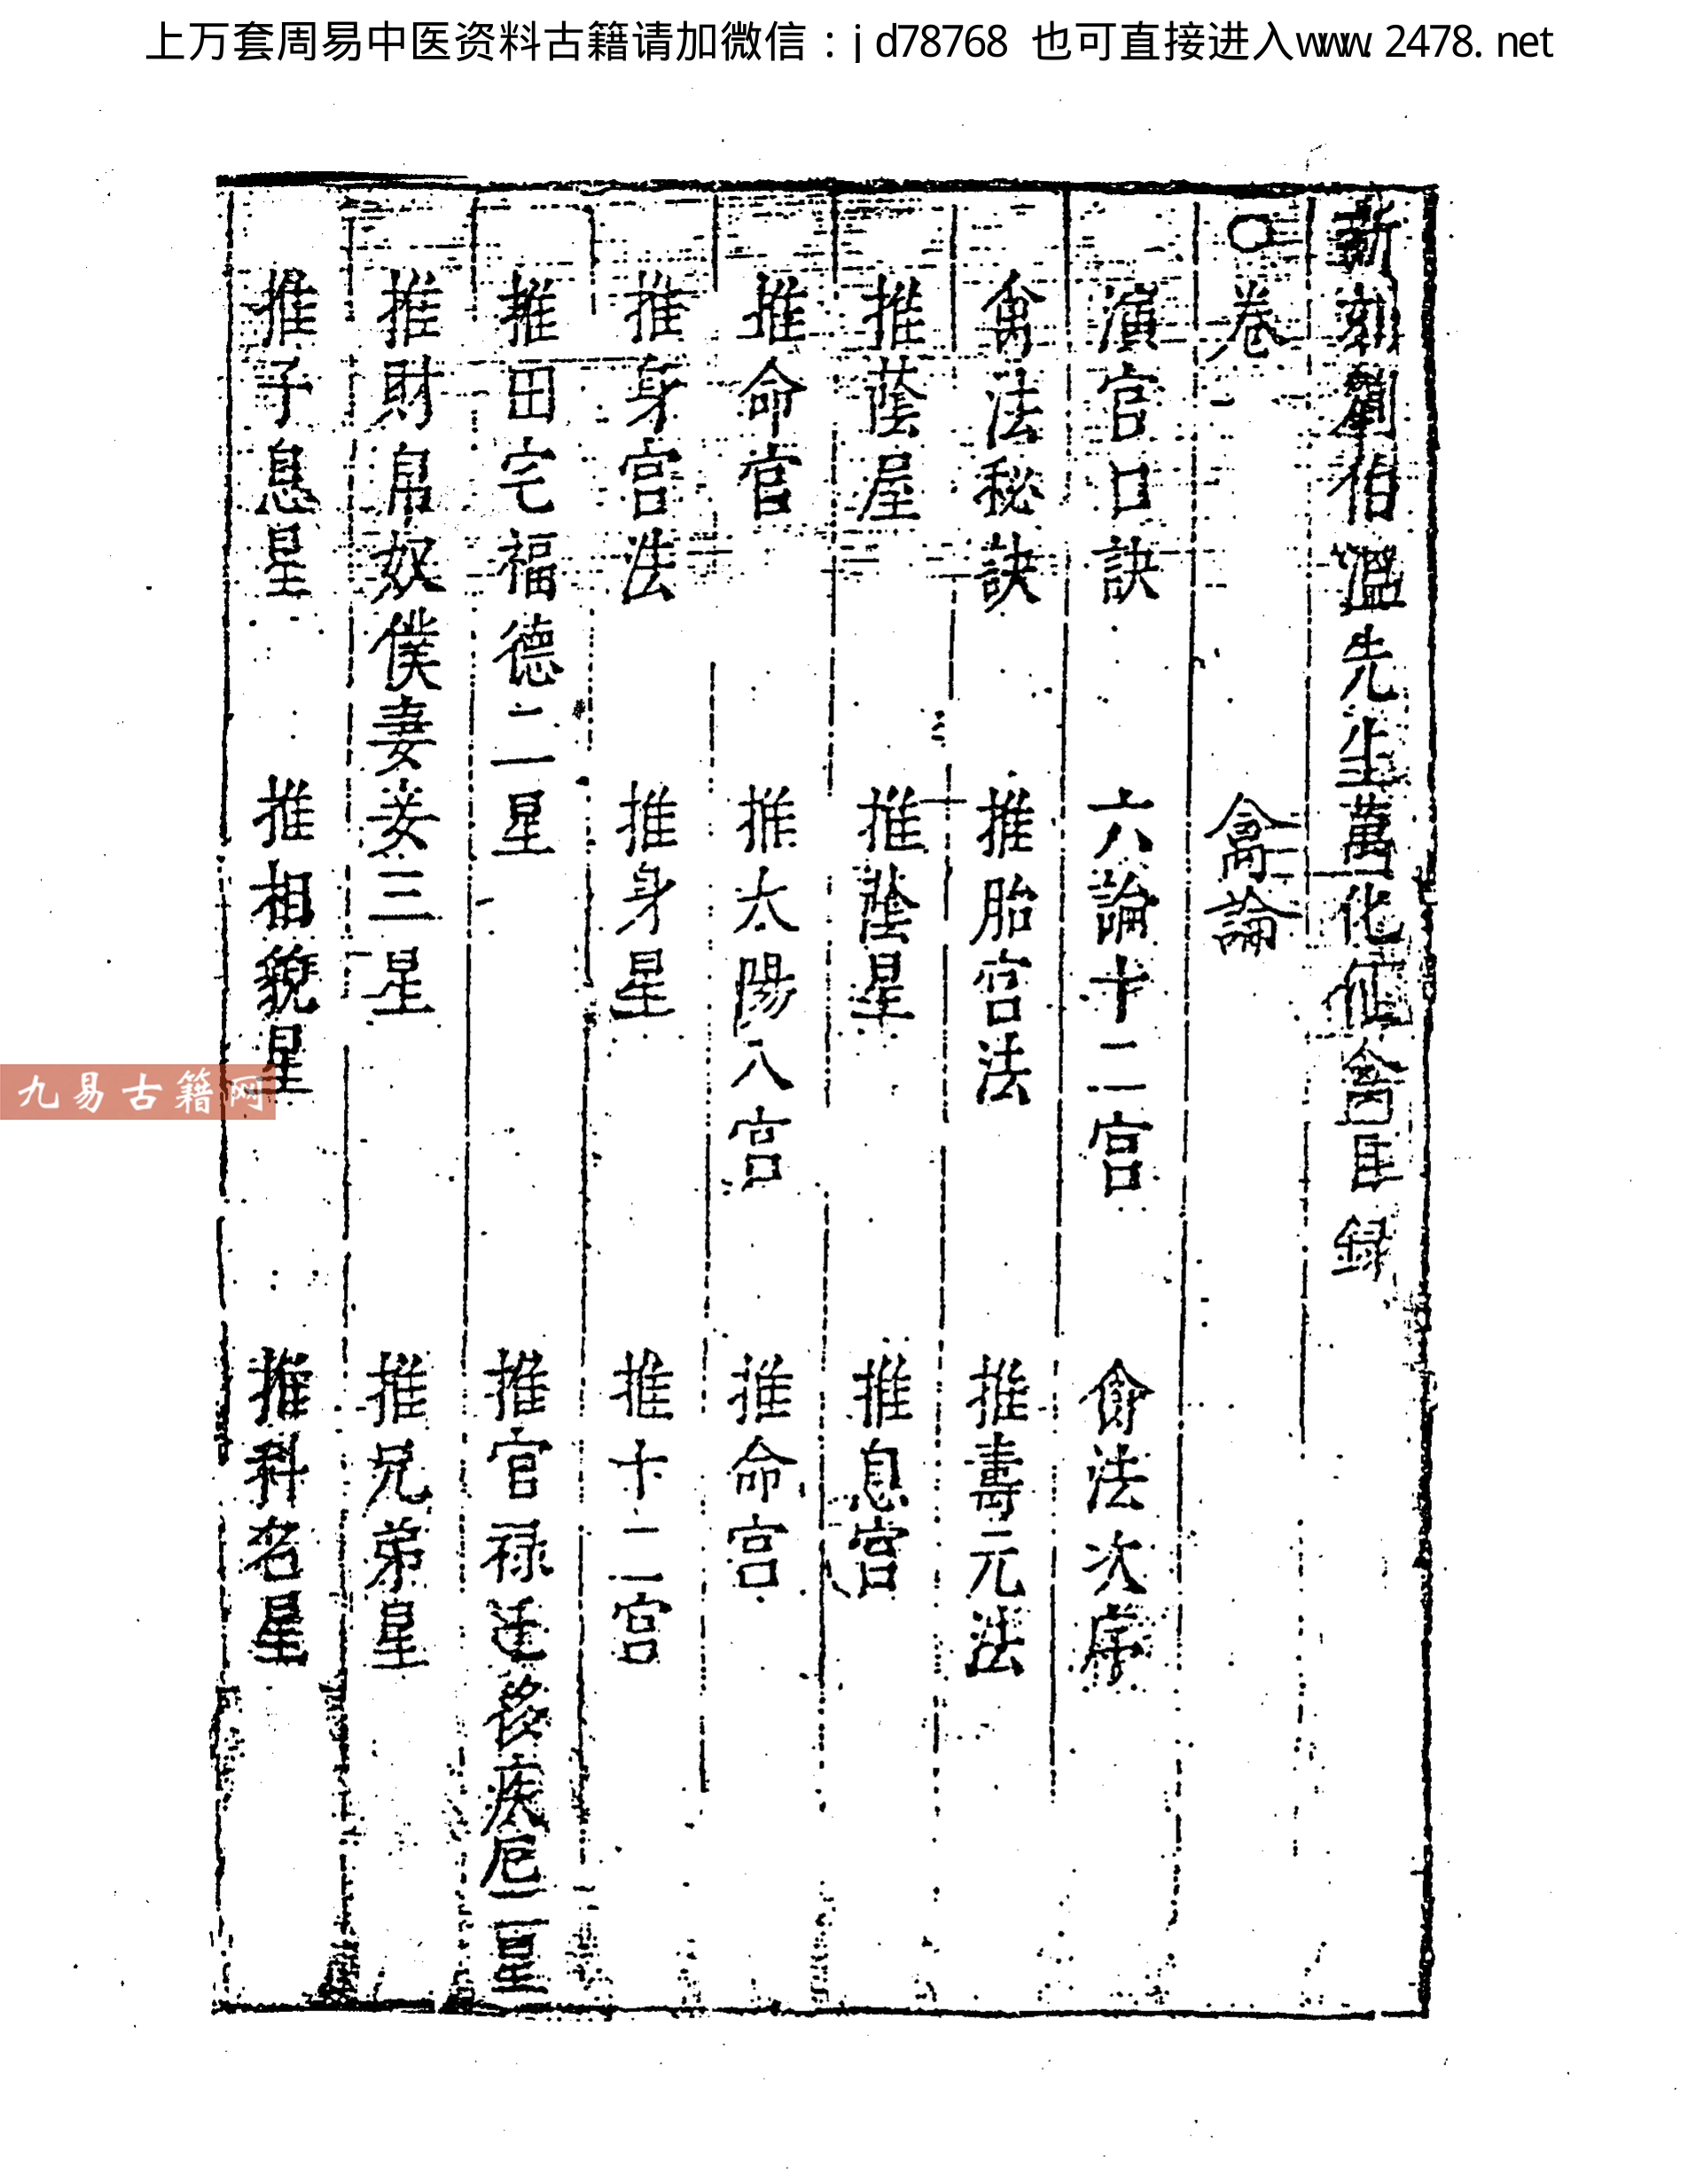 上万套周易中医资料古籍请加微信：jd78768 也可直接进入www.2478.net
新刻劉伯溫先生萬化仙禽目録
○卷 禽論
演官口訣 六論十二宫 禽法次序
禽法秘訣 推胎宫法 推壽元法
推蔭屋 推蔭星 推息宫
推命官 推太陽八宫 推命宫
推身宫法 推身星 推十二宫
推田宅福德二星 推官禄迁移疾厄二星
推財帛奴僕妻妾三星 推兄弟星
推子息星 推相貌星 推科名星
九易古籍网